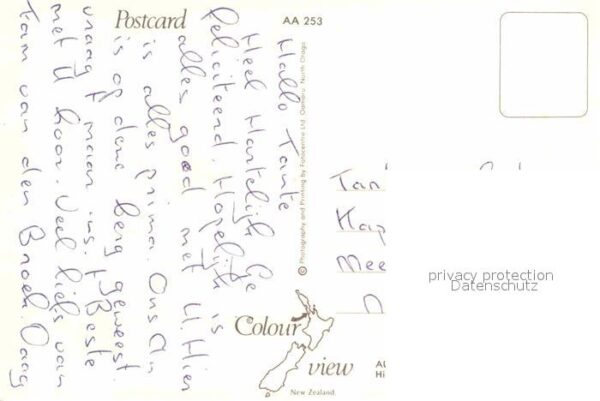 Postcard
AA 253
Hallo Tante
Heel Hartelijk Ge
feliciteerd. Hopelijk is
alles goed met U. Hier
is alles prima. Ons An
is op deze berg geweest.
vraag 't maar ins. 't Beste
met U hoor. Veel liefs van
Tam van den Broek. Daag
© Photography and Printing by Fotocentre Ltd Oamaru North Otago
Tan
Hap
Mee
privacy protection
Datenschutz
Colour
view
New Zealand